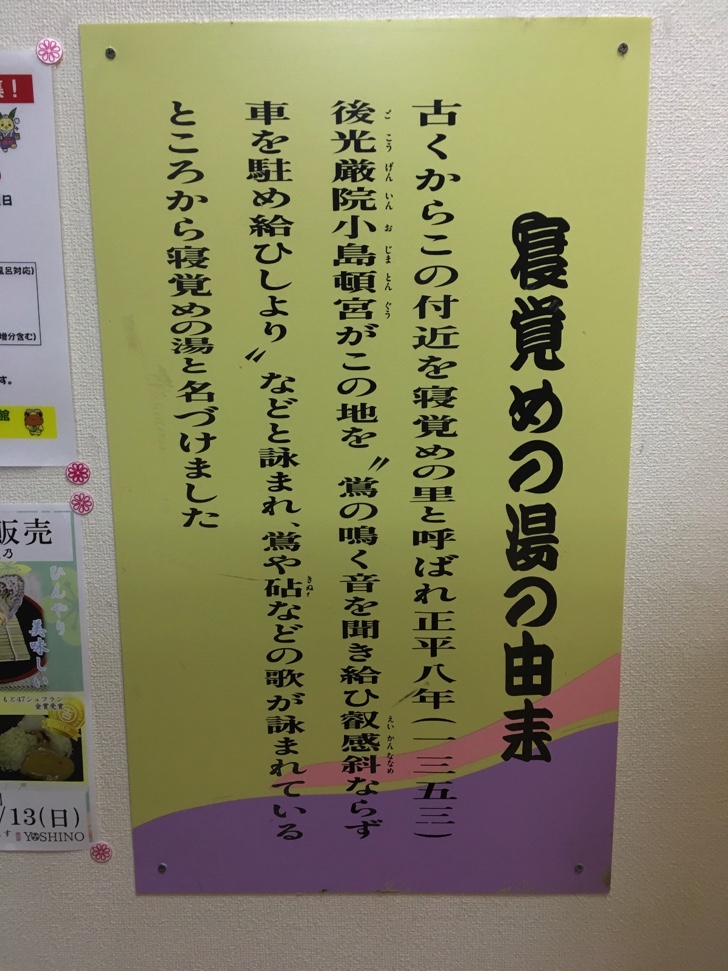 寝覚めの湯の由来
古くからこの付近を寝覚めの里と呼ばれ正平八年(一三五三)
後光厳院小島頓宮がこの地を〝鶯の鳴く音を聞き給ひ叡感斜ならず
ご こう げん いん お じま とん ぐう
えい かん ななめ
車を駐め給ひしより〟などと詠まれ、鶯や砧などの歌が詠まれている
きぬた
ところから寝覚めの湯と名づけました
!
日
風呂対応)
増分含む)
す。
館
販売
乃
ひんやり
美味しい
金賞受賞
/13(日)
ます
YOSHINO